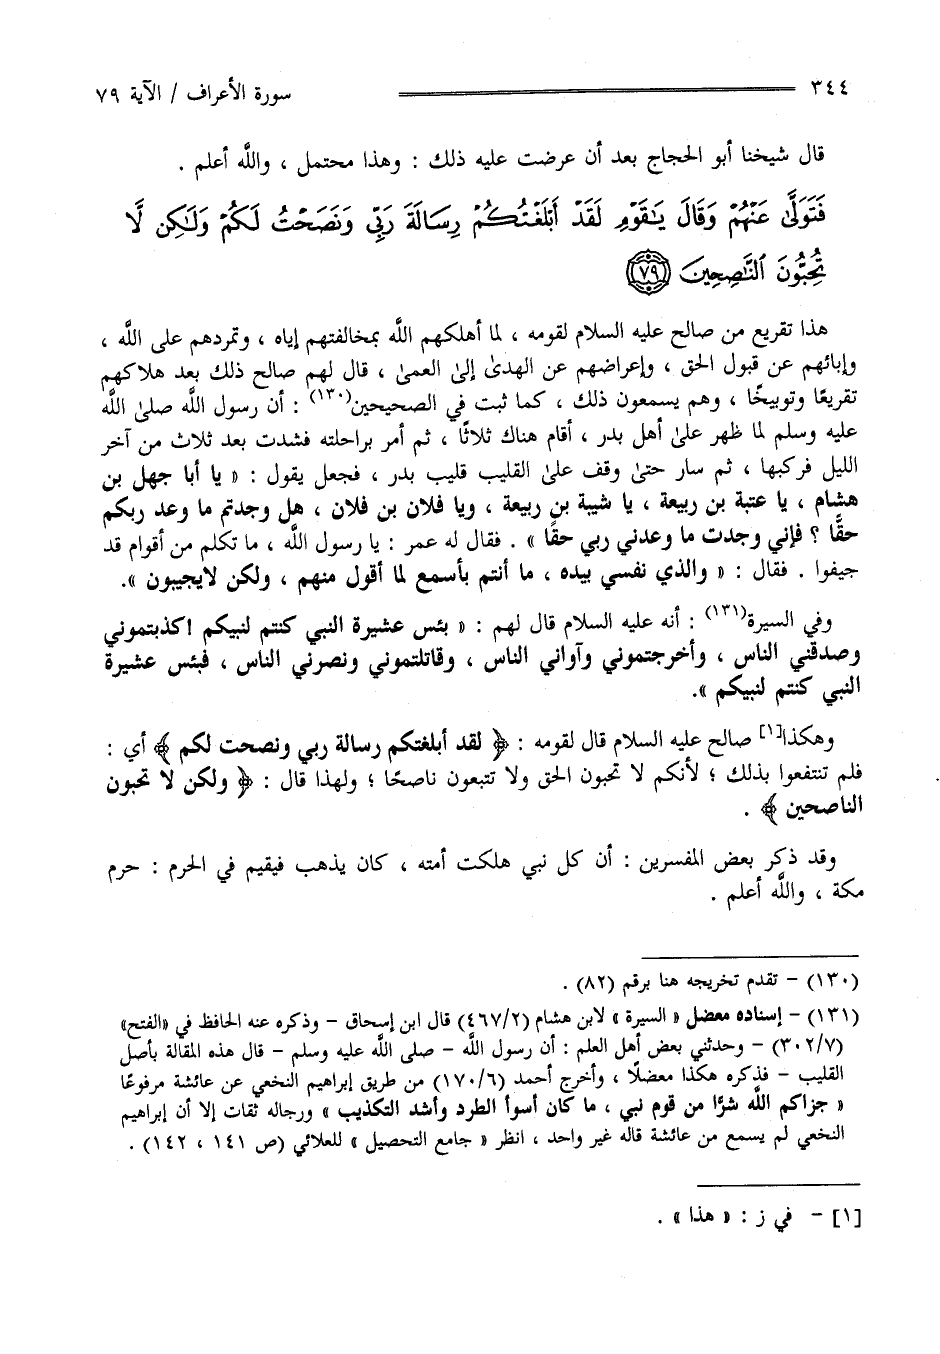 ٣٤٤ سورة الأعراف / الآية ٧٩
قال شيخنا أبو الحجاج بعد أن عرضت عليه ذلك : وهذا محتمل ، والله أعلم .
فَتَوَلَّىٰ عَنْهُمْ وَقَالَ يَٰقَوْمِ لَقَدْ أَبْلَغْتُكُمْ رِسَالَةَ رَبِّي وَنَصَحْتُ لَكُمْ وَلَٰكِن لَّا
تُحِبُّونَ ٱلنَّٰصِحِينَ ٧٩
هذا تقريع من صالح عليه السلام لقومه ، لما أهلكهم الله بمخالفتهم إياه ، وتمردهم على الله ،
وإبائهم عن قبول الحق ، وإعراضهم عن الهدىٰ إلىٰ العمىٰ ، قال لهم صالح ذلك بعد هلاكهم
تقريعًا وتوبيخًا ، وهم يسمعون ذلك ، كما ثبت في الصحيحين(١٣٠) : أن رسول الله صلىٰ الله
عليه وسلم لما ظهر علىٰ أهل بدر ، أقام هناك ثلاثًا ، ثم أمر براحلته فشدت بعد ثلاث من آخر
الليل فركبها ، ثم سار حتىٰ وقف علىٰ القليب قليب بدر ، فجعل يقول : « يا أبا جهل بن
هشام ، يا عتبة بن ربيعة ، يا شيبة بن ربيعة ، ويا فلان بن فلان ، هل وجدتم ما وعد ربكم
حقًّا ؟ فإني وجدت ما وعدني ربي حقًا » . فقال له عمر : يا رسول الله ، ما تكلم من أقوام قد
جيفوا . فقال : « والذي نفسي بيده ، ما أنتم بأسمع لما أقول منهم ، ولكن لايجيبون ».
وفي السيرة(١٣١) : أنه عليه السلام قال لهم : « بئس عشيرة النبي كنتم لنبيكم اكذبتموني
وصدقني الناس ، وأخرجتموني وآواني الناس ، وقاتلتموني ونصرني الناس ، فبئس عشيرة
النبي كنتم لنبيكم ».
وهكذا[١] صالح عليه السلام قال لقومه : ﴿ لقد أبلغتكم رسالة ربي ونصحت لكم ﴾ أي :
فلم تنتفعوا بذلك ؛ لأنكم لا تحبون الحق ولا تتبعون ناصحًا ؛ ولهذا قال : ﴿ ولكن لا تحبون
الناصحين ﴾ .
وقد ذكر بعض المفسرين : أن كل نبي هلكت أمته ، كان يذهب فيقيم في الحرم : حرم
مكة ، والله أعلم .
(١٣٠) – تقدم تخريجه هنا برقم (٨٢) .
(١٣١) – إسناده معضل « السيرة » لابن هشام (٤٦٧/٢) قال ابن إسحاق – وذكره عنه الحافظ في «الفتح»
(٣٠٢/٧) – وحدثني بعض أهل العلم : أن رسول الله – صلى الله عليه وسلم – قال هذه المقالة بأصل
القليب – فذكره هكذا معضلًا ، وأخرج أحمد (١٧٠/٦) من طريق إبراهيم النخعي عن عائشة مرفوعًا
« جزاكم الله شرًّا من قوم نبي ، ما كان أسوأ الطرد وأشد التكذيب » ورجاله ثقات إلا أن إبراهيم
النخعي لم يسمع من عائشة قاله غير واحد ، انظر « جامع التحصيل » للعلائي (ص ١٤١ ، ١٤٢) .
[١] – في ز : « هذا » .